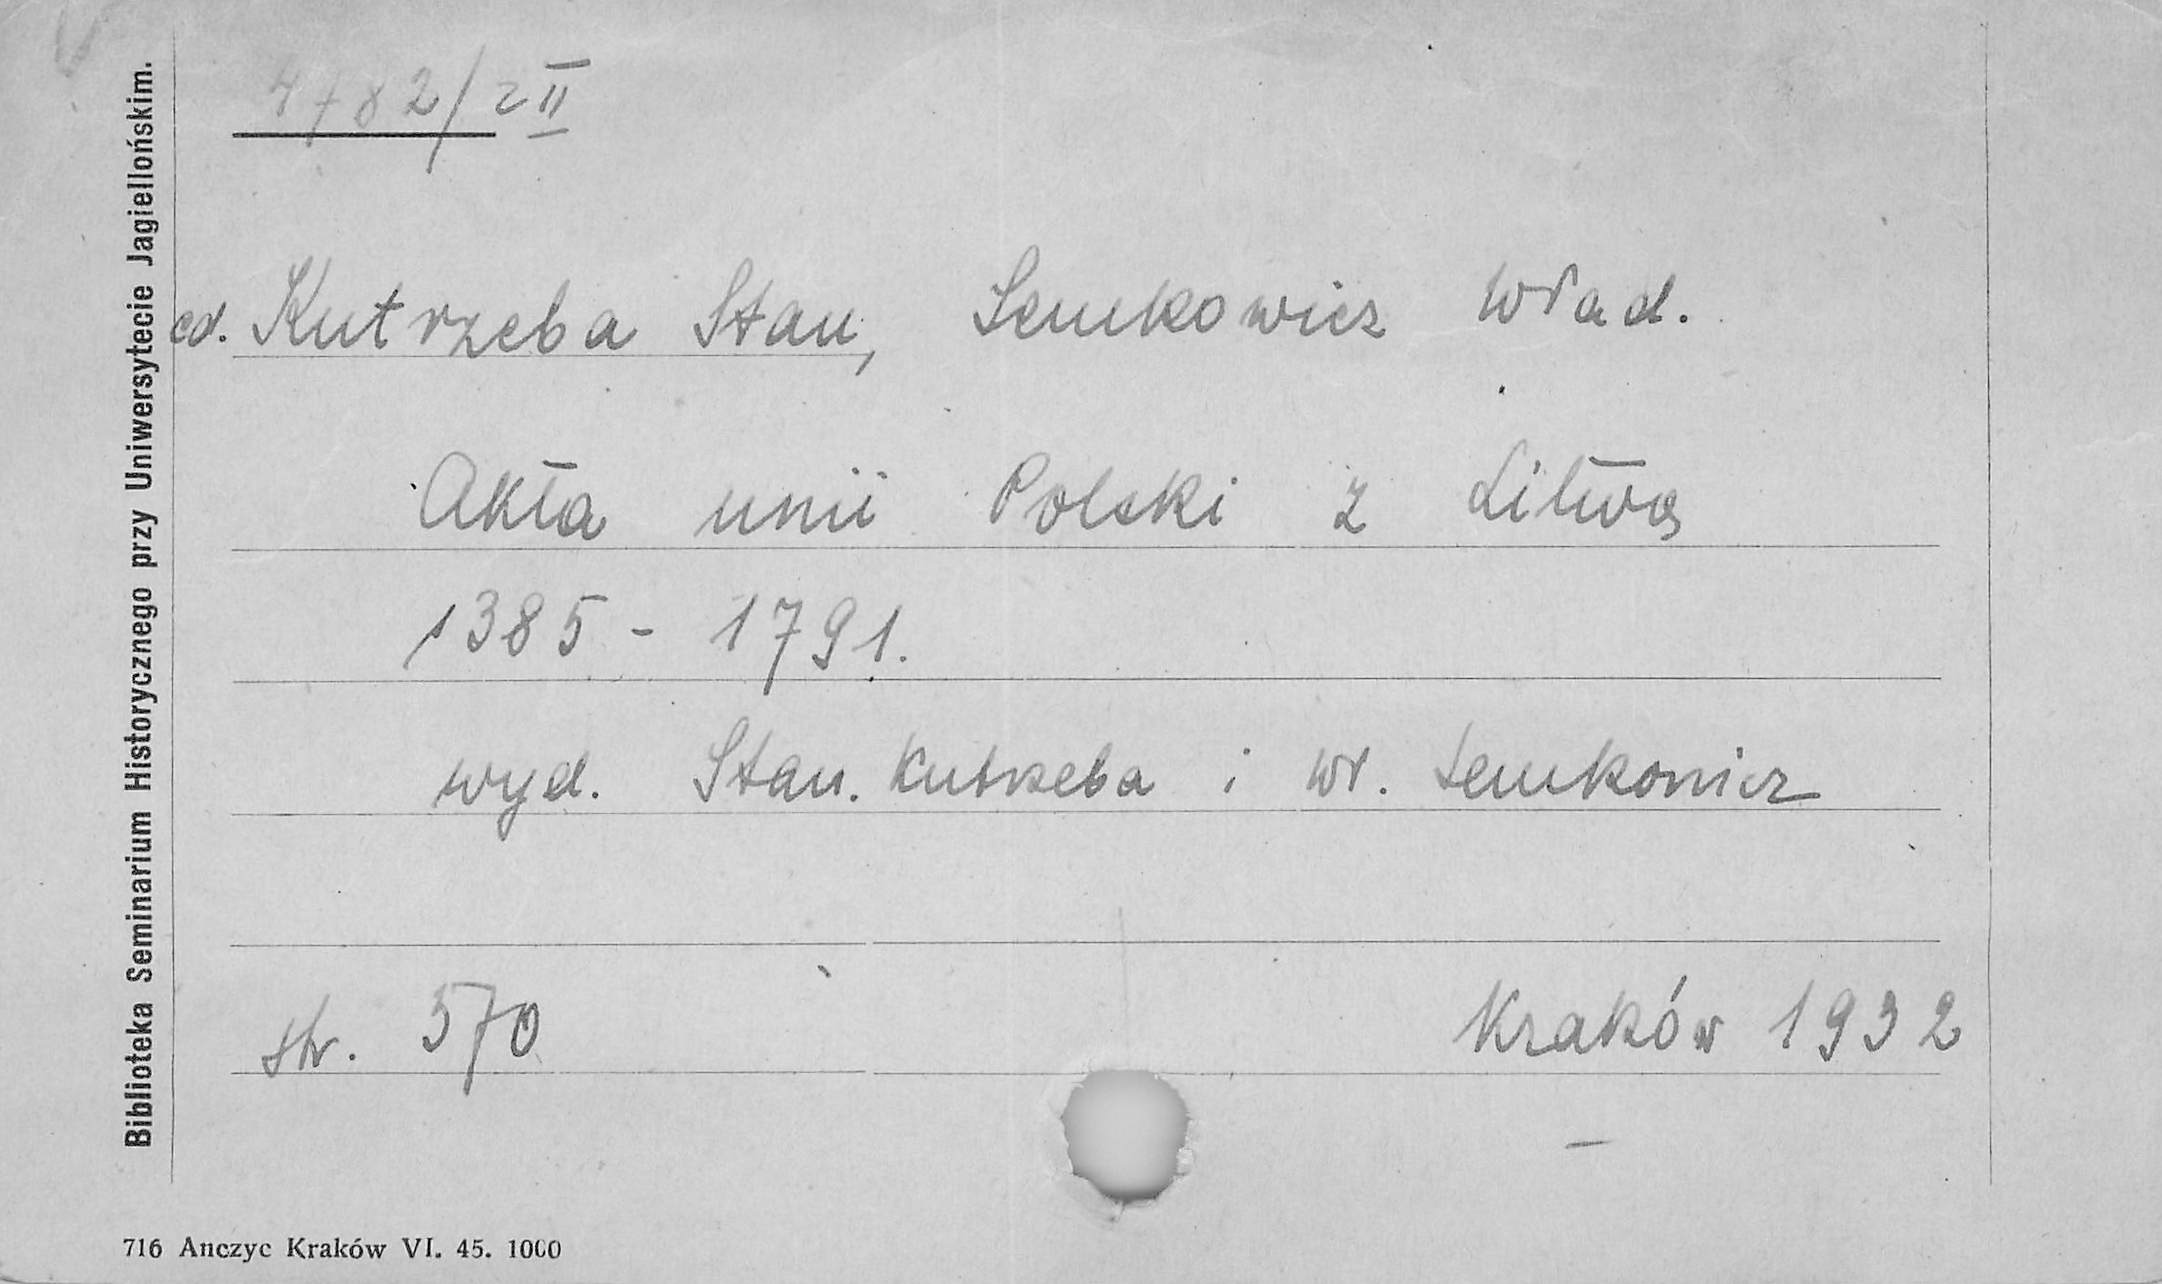 4782/z II
Biblioteka Seminarium Historycznego przy Uniwersytecie Jagiellońskim.
ed. Kutrzeba Stan, Semkowicz Wład.
Akta unii Polski z Litwą
1385 - 1791.
wyd. Stan. Kutrzeba i Wł. Semkowicz
str. 570
Kraków 1932
716 Anczyc Kraków VI. 45. 1000